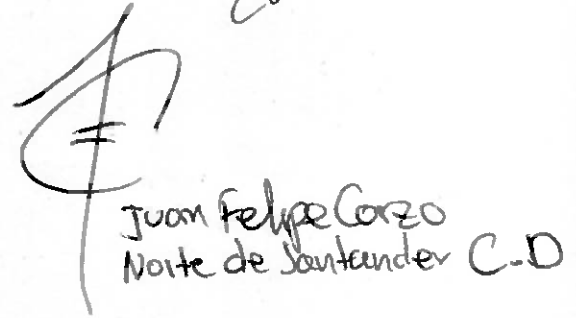 Juan Felipe Corzo
Norte de Santander C.D